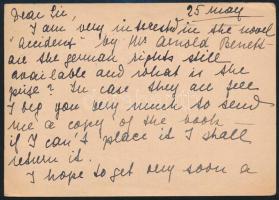 Dear Sir, 25 May
I am very interested in the novel
"Accident" by Mr Arnold Benett
are the german rights still
available and what is the
prize? In case they are free
I beg you very much to send
me a copy of the book –
if I can't place it I shall
return it.
I hope to get very soon a